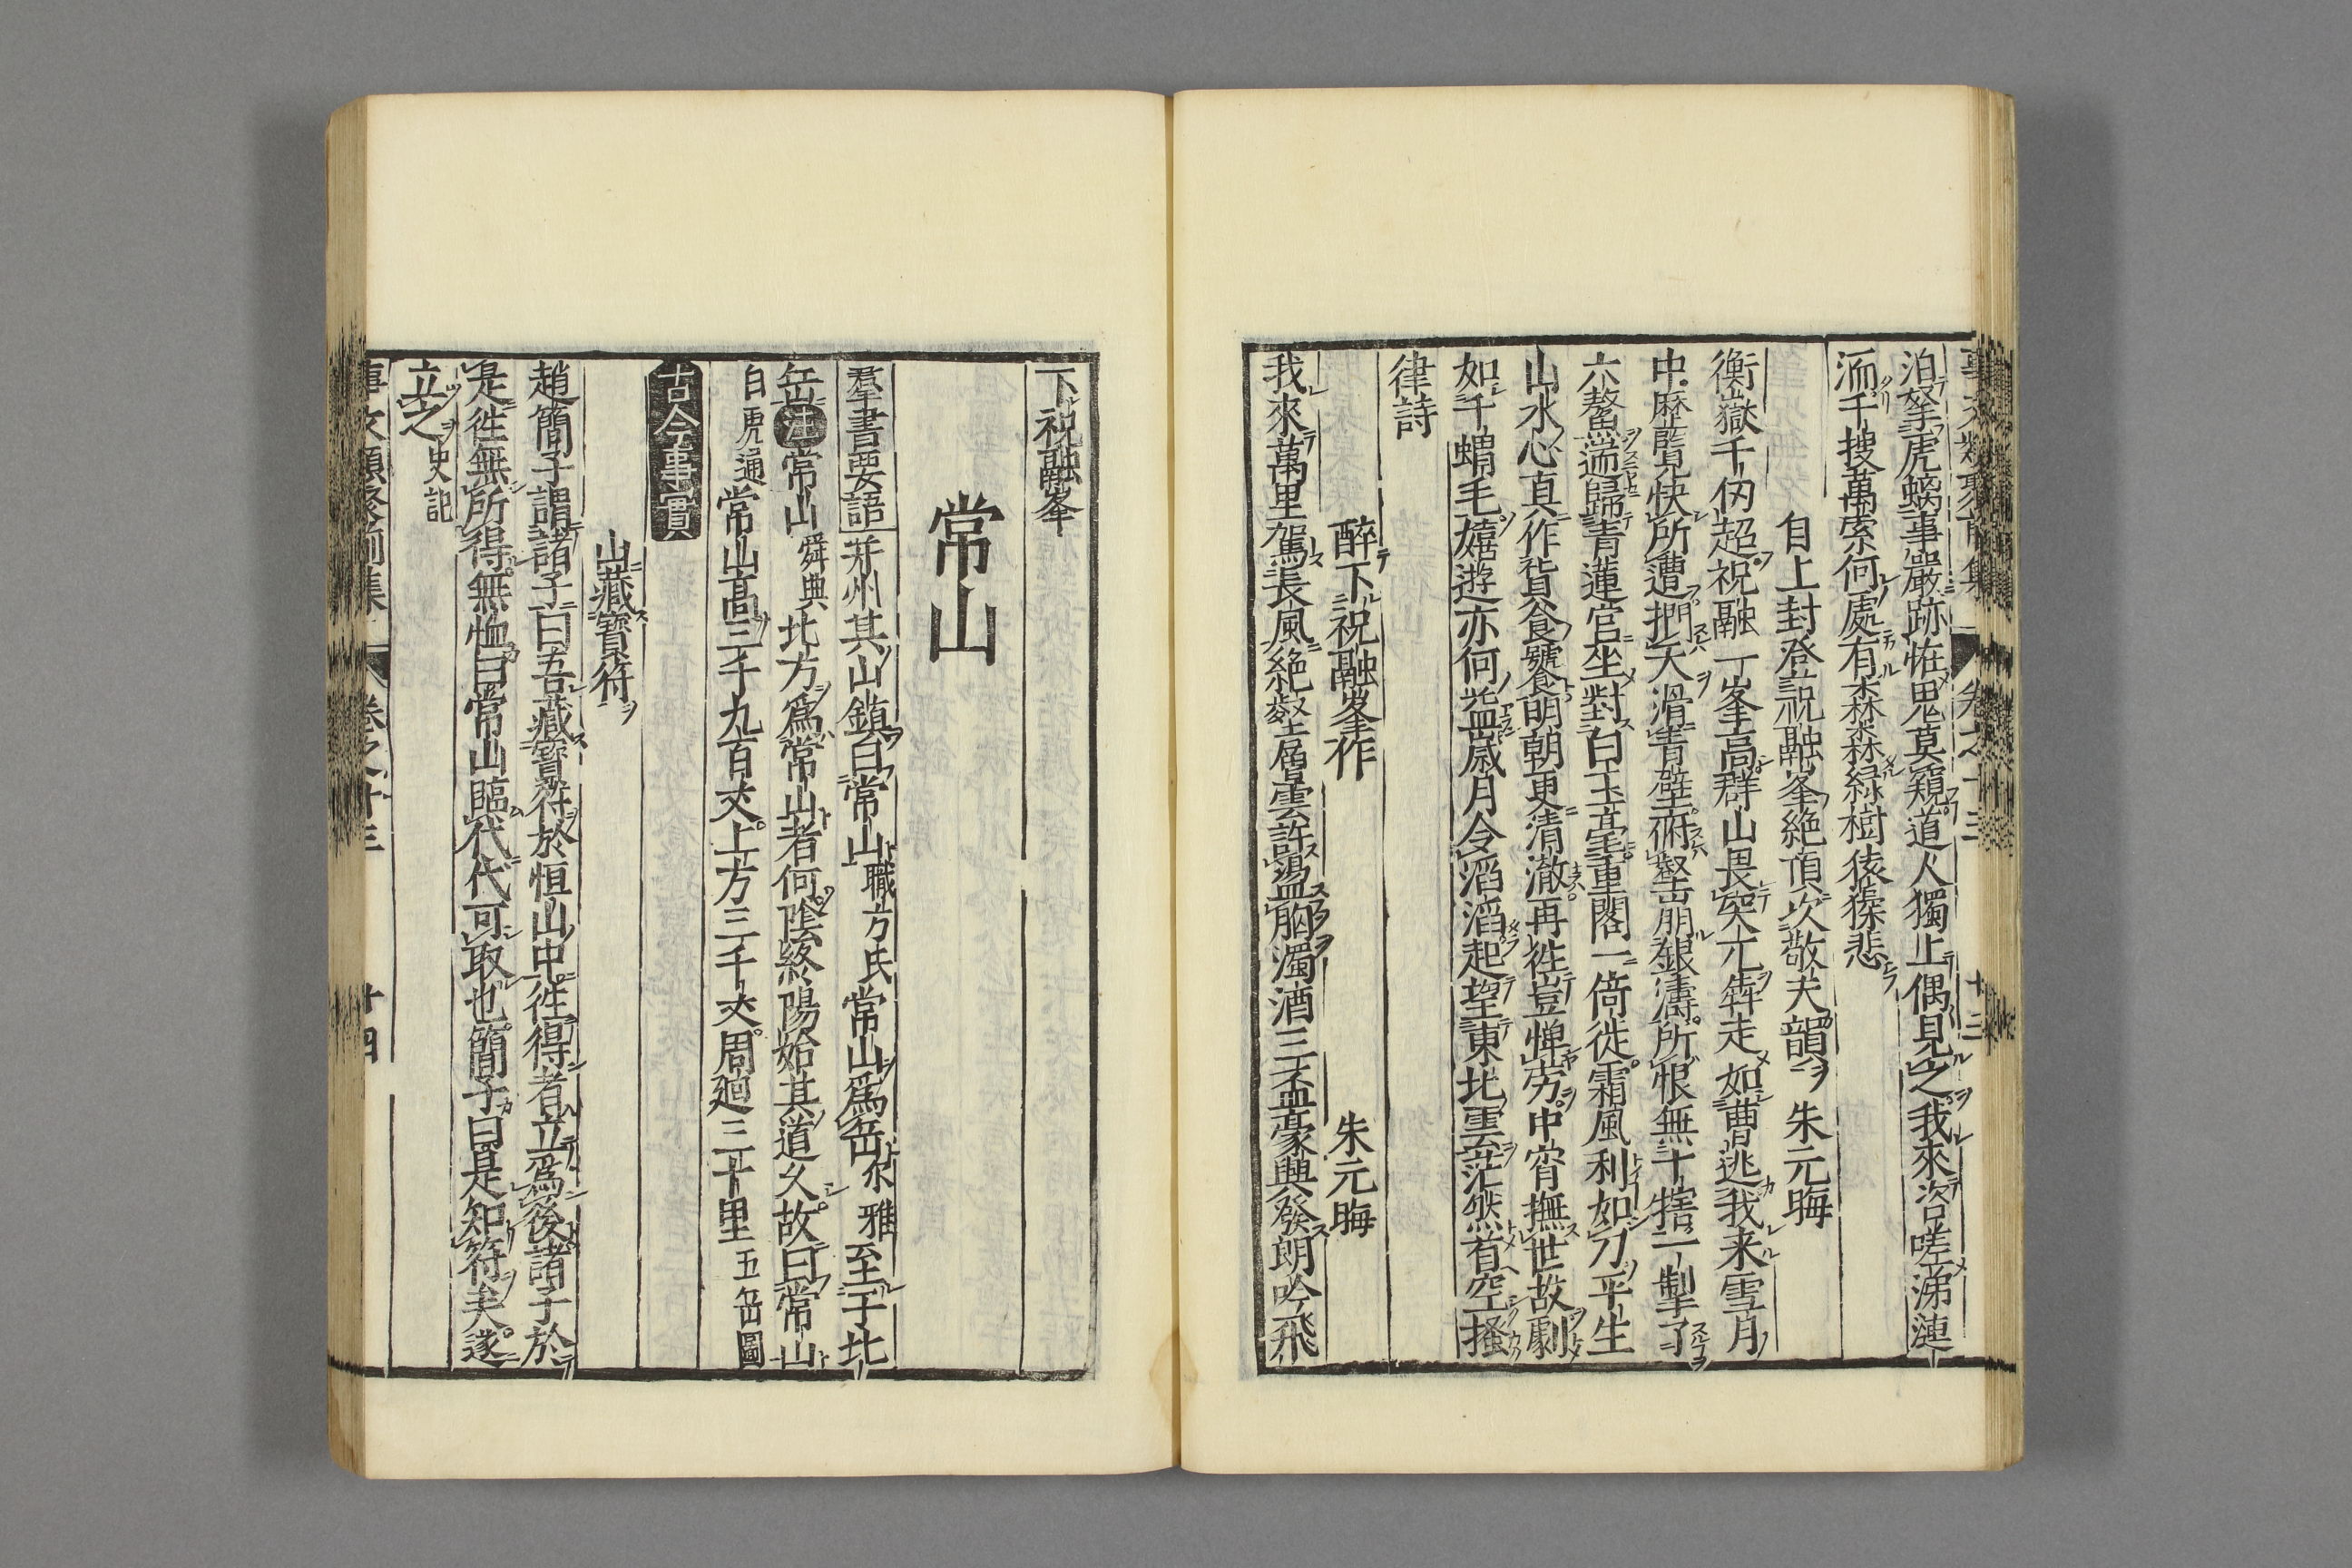 泊拏虎螭事嚴跡恠鬼莫窺道人獨上偶見之我來咨嗟涕漣
洏千搜萬索何處有森森綠樹猿猱悲
自上封登祝融峯絶頂次敬夫韻 朱元晦
衡嶽千仞超祝融一峯高群山畏突兀犇走如曹逃我来雪月
中歷覽快所遭捫天滑青壁俯壑崩銀濤所恨無十犗一掣了
六鰲遄歸青蓮宮坐對白玉毫重閣一倚徙霜風利如刀平生
山水心真作貨食饕明朝更清澈再徃豈憚劳中宵撫世故劇
如千蝟毛嬉遊亦何益歳月令滔滔起望東北雲茫然首空搔
律詩
醉下祝融峯作 朱元晦
我來萬里駕長風絶壑層雲許盪胸濁酒三盃豪興發朗吟飛
下祝融峯
常山
羣書要語 并州其山鎮曰常山職方氏常山爲岳尓雅至于北
岳注常山舜典北方爲常山者何陰終陽始其道久故曰常山
白虎通常山高三千九百丈上方三千丈周廻三十里五岳圖
古今事實
山藏寶符
趙簡子謂諸子曰吾藏寶符於恒山中徃得者立爲後諸子於
是徃無所得無恤曰常山臨代代可取也簡子曰是知符矣遂
立之史記
事文類聚前集 卷之十三 十四